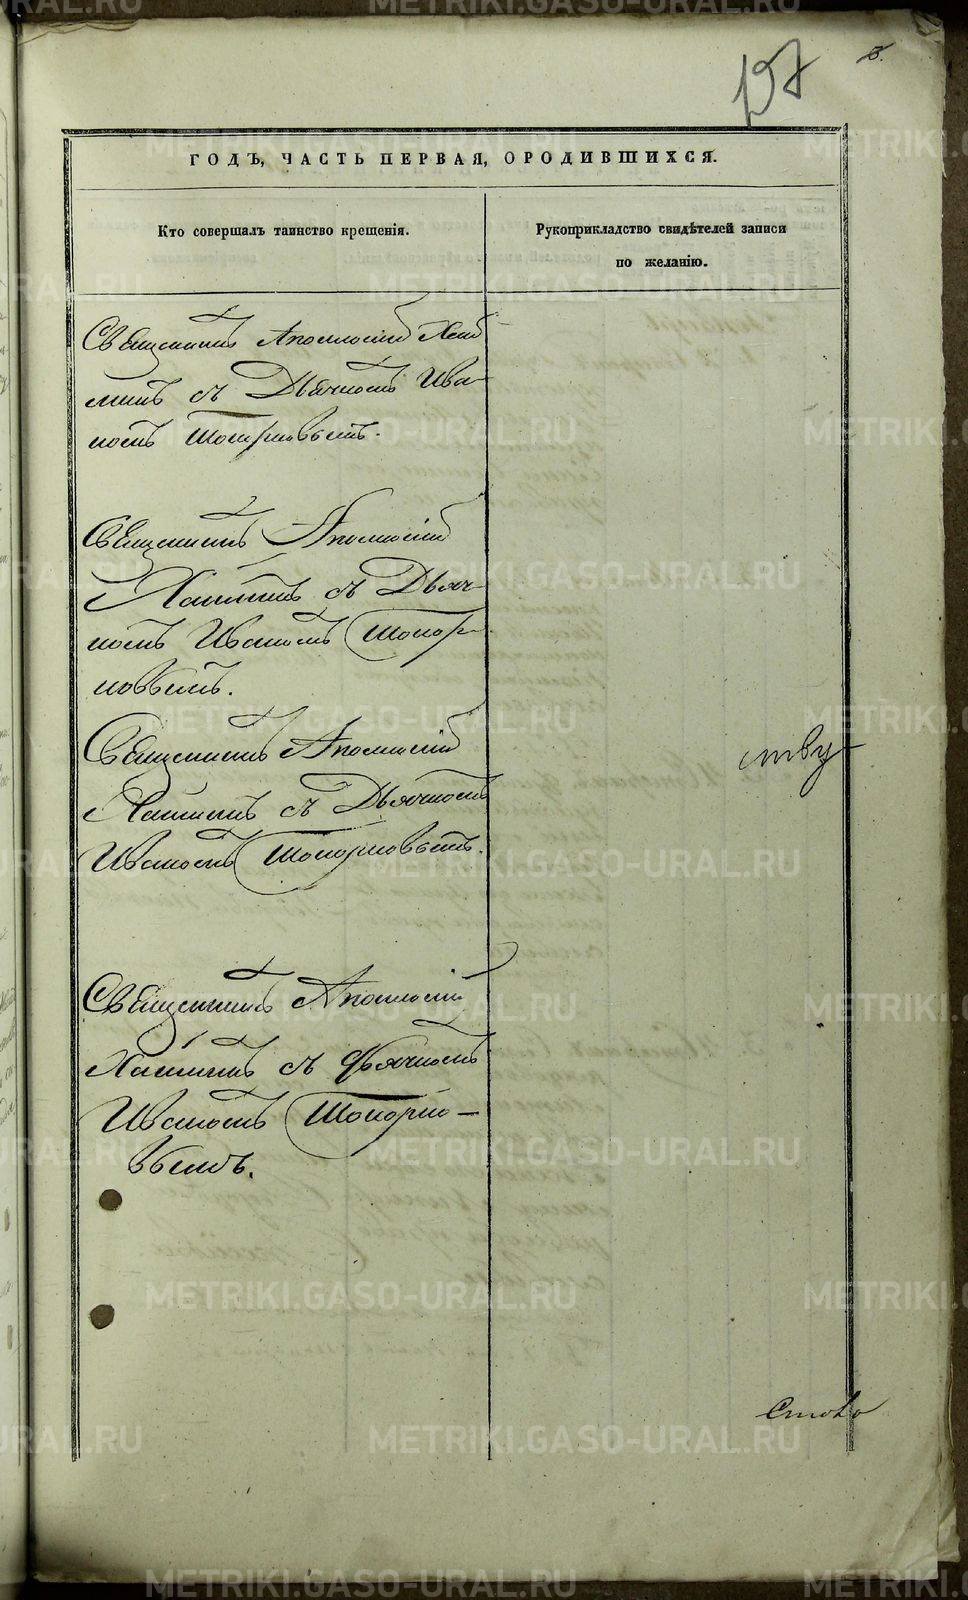 197
3.
ГОДЪ, ЧАСТЬ ПЕРВАЯ, О РОДИВШИХСЯ.
Кто совершалъ таинство крещенія.
Рукоприкладство свидѣтелей записи
по желанію.
Священникъ Аполлосій
съ Дьячкомъ Ива-
номъ Топорковымъ.
Священникъ Аполлосій
съ Дьяч-
комъ Иваномъ Топор-
ковымъ.
Священникъ Аполлосій
съ Дьячкомъ
Иваномъ Топорковымъ.
ству
Священникъ Аполлосій
съ Дьячкомъ
Иваномъ Топорко-
вымъ.
METRIKI.GASO-URAL.RU